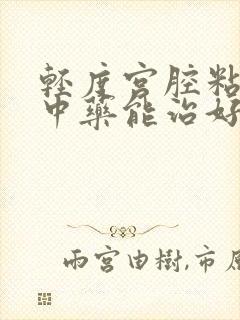 輕度宮腔粘
中藥能治好
雨宮由樹,市原